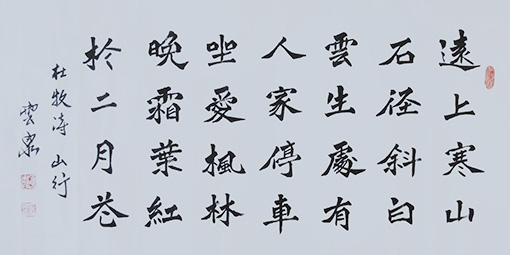 遠上寒山
石径斜白
雲生處有
人家停車
坐愛楓林
晚霜葉紅
於二月花
杜牧诗 山行
雲泉